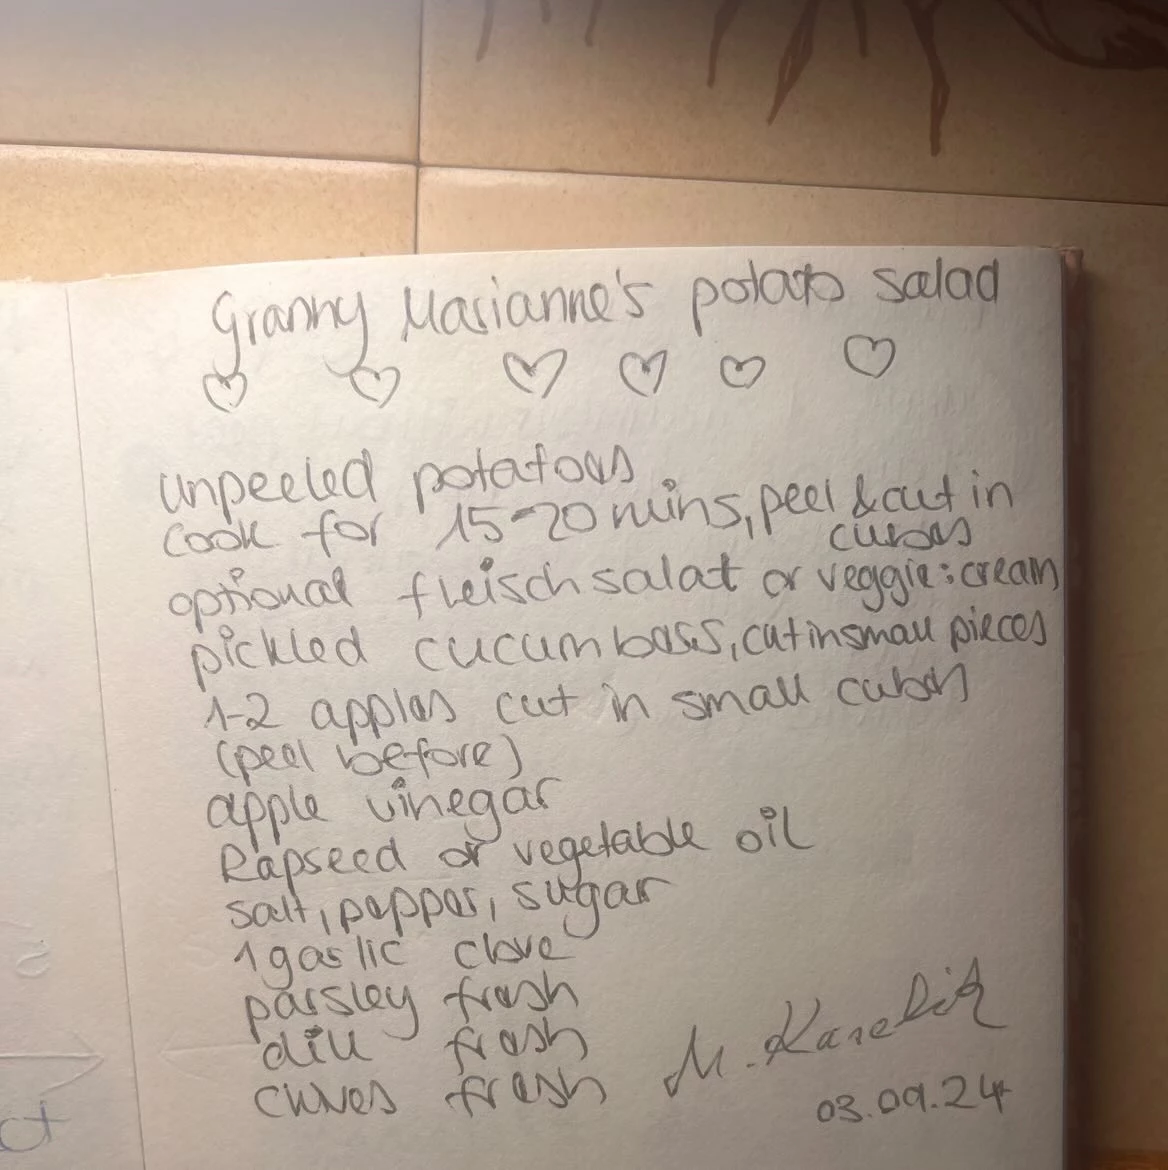 Granny Marianne's potato salad
unpeeled potatoes
cook for 15-20 mins, peel & cut in
cubes
optional fleischsalat or veggie: cream
pickled cucumbers, cut in small pieces
1-2 apples cut in small cubes
(peel before)
apple vinegar
Rapseed or vegetable oil
salt, pepper, sugar
1 garlic clove
parsley fresh
dill fresh
chives fresh
M.
03.09.24